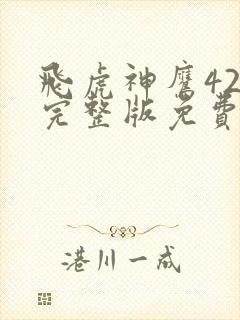 飛虎神鷹42
完整版免費
港川一成